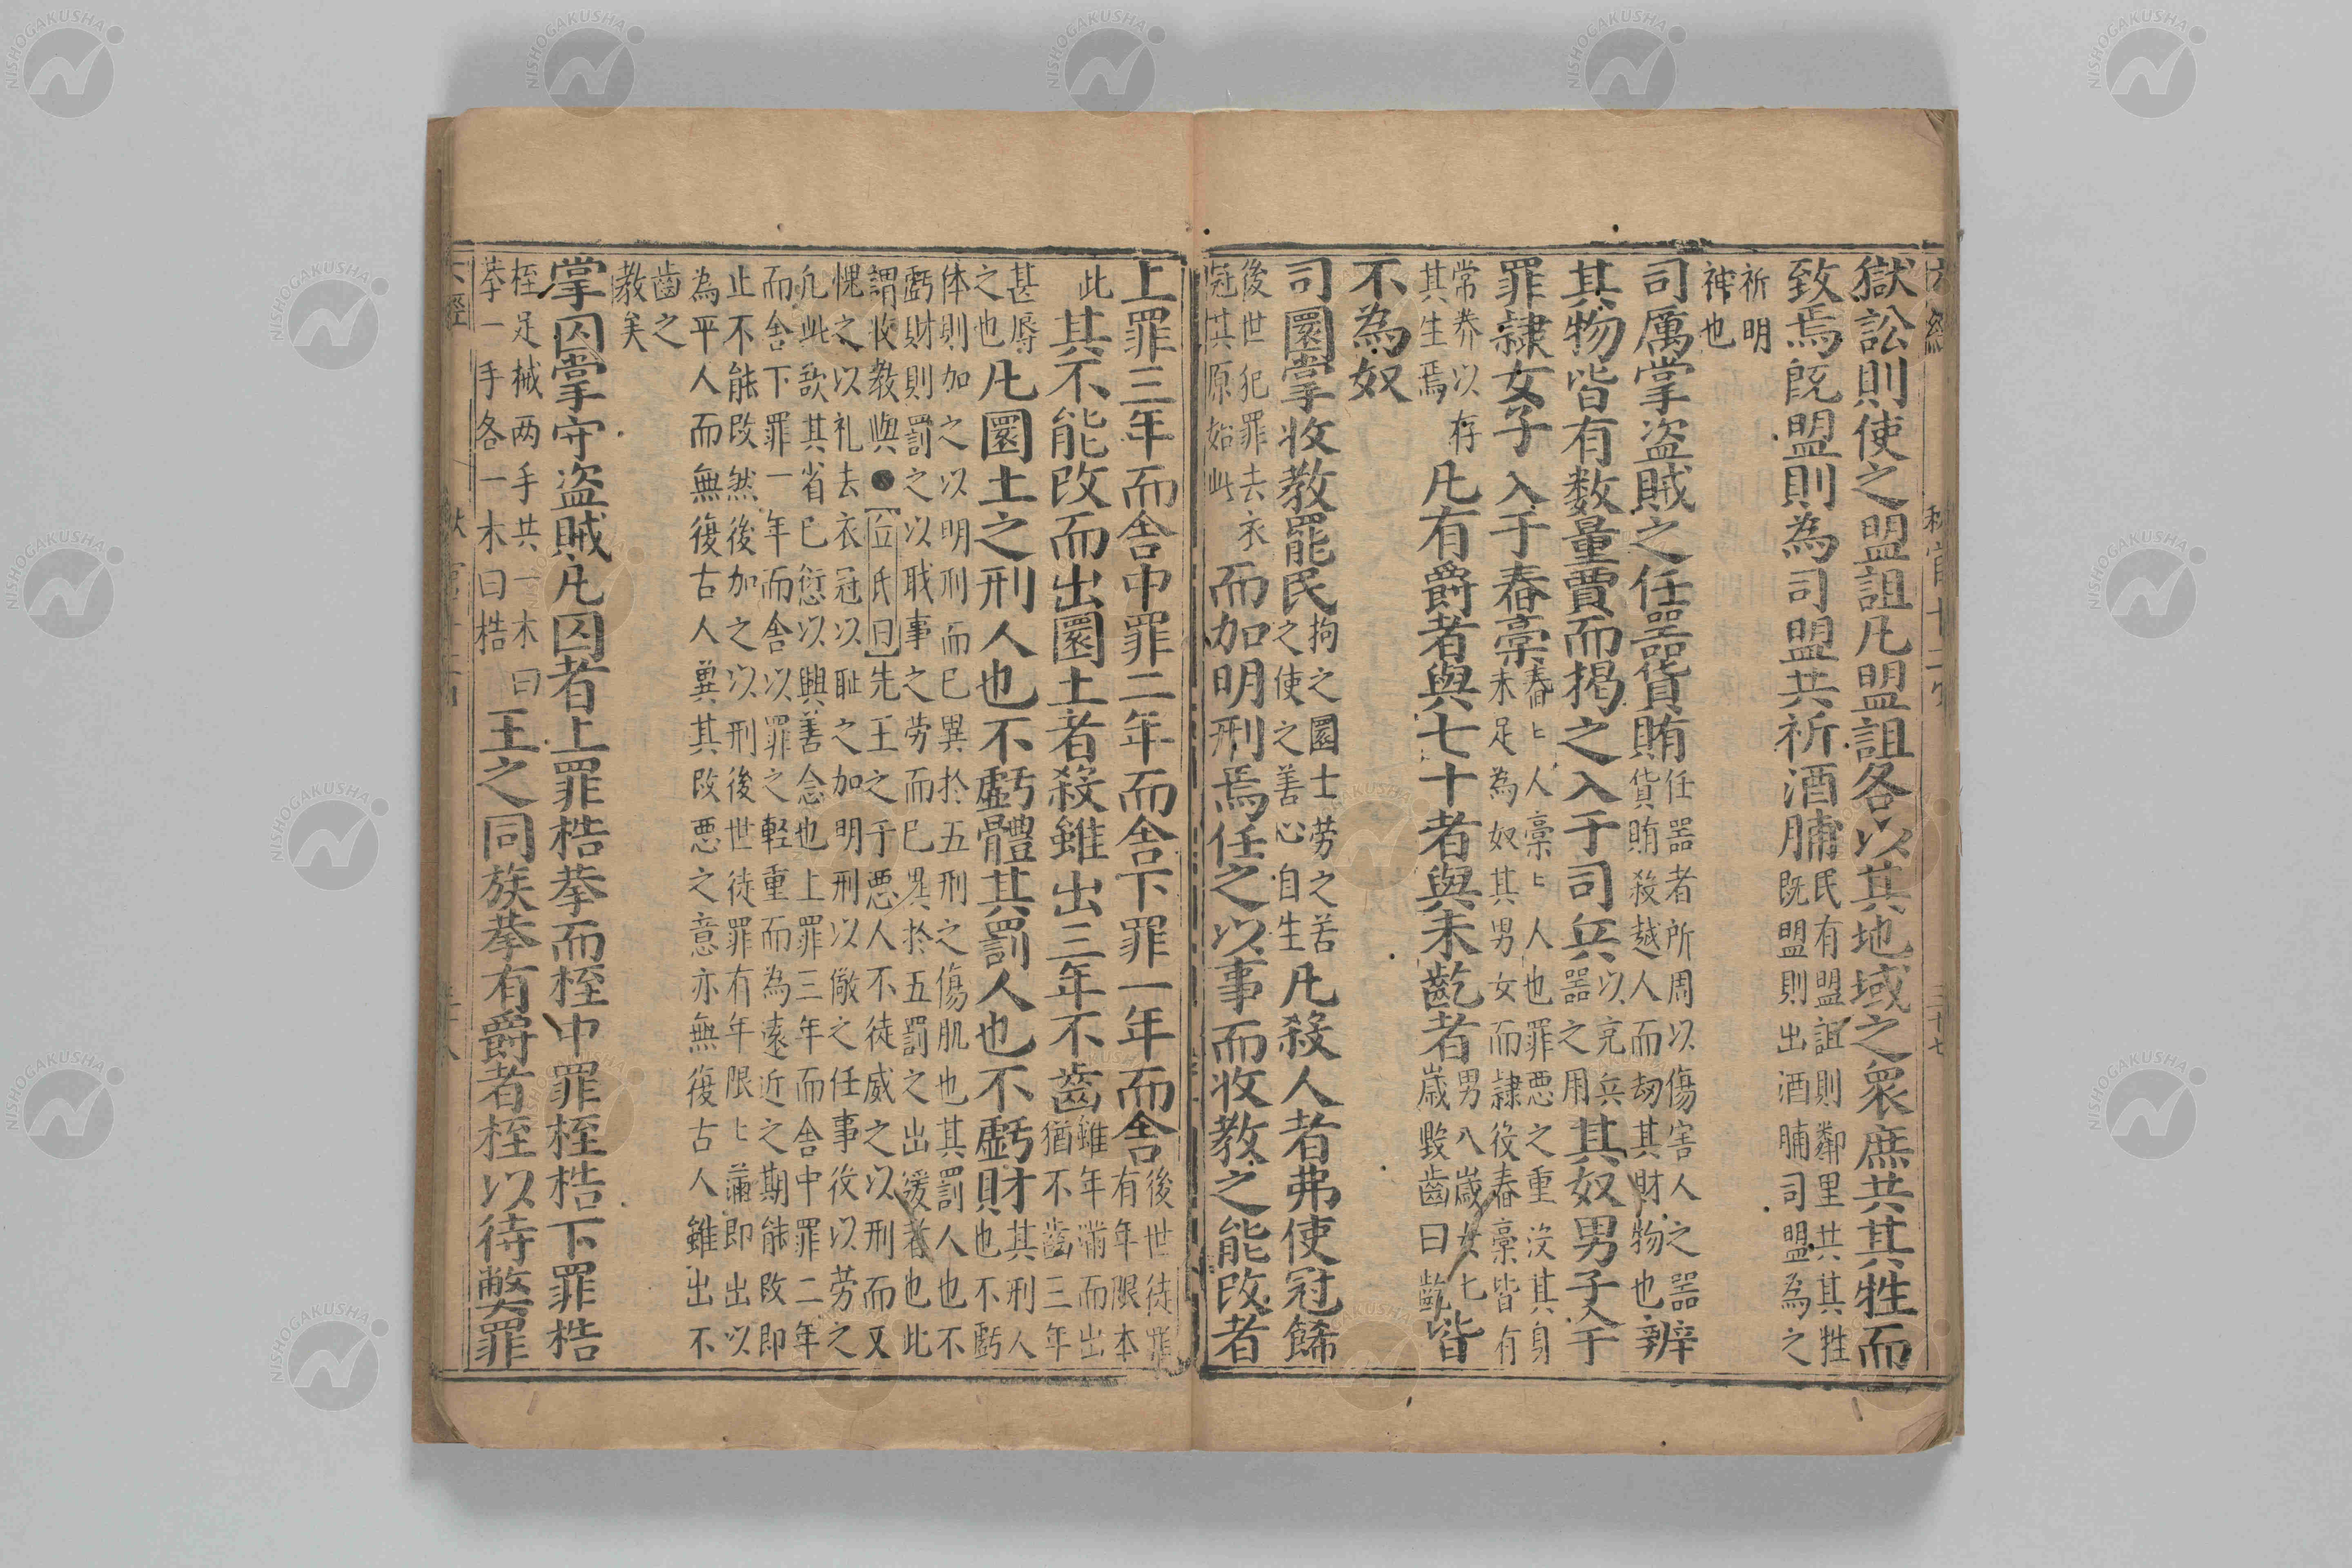 獄訟則使之盟詛凡盟詛各以其地域之衆庶共其牲而
致焉旣盟則為司盟共祈酒脯
民有盟詛則鄰里共其牲
既盟則出酒脯司盟為之
祈明
神也
司厲掌盗賊之任噐貨賄
任噐者所周以傷害人之噐
貨賄殺越人而刼其財物也
辨
其物皆有数量賈而揭之入于司兵
以充兵
噐之用
其奴男子入于
罪隷女子入于舂稾
舂〻人稾〻人也罪惡之重没其身
未足為奴其男女而隷役舂稾皆有
常养以存
其生焉
凡有爵者與七十者與未齓者
男八歳女七
歳毀齒曰齓
皆
不為奴
司圜掌收教罷民
拘之圜士劳之苦
之使之善心自生
凡殺人者弗使冠餙
後世犯罪去衣
冠其原始此
而加明刑焉任之以事而收教之能改者
上罪三年而舍中罪二年而舍下罪一年而舍
後世徒罪
有年限本
此
其不能改而出圜土者殺雖出三年不齒
雖年滿而出
猶不齒三年
甚辱
之也
凡圜土之刑人也不虧體其罰人也不虧財
其刑人
也不虧
体則加之以明刑而已異於五刑之傷肌也其罰人也不
虧財則罰之以職事之劳而已異於五罰之出鍰者也此
謂收教與●丘氏曰先王之于惡人不徒威之以刑而又
愧之以礼去衣冠以耻之加明刑以儆之任事役以劳之
凢此歆其省已愆以興善念也上罪三年而舍中罪二年
而舍下罪一年而舍以罪之輕重而為遠近之期能改即
止不能改然後加之以刑後世徒罪有年限〻滿即出以
為平人而無復古人兾其改惡之意亦無復古人雖出不
齒之
教矣
掌囚掌守盗賊凡囚者上罪梏拲而桎中罪桎梏下罪梏
桎足械两手共一木曰
拲一手各一木曰梏
王之同族拲有爵者桎以待弊罪